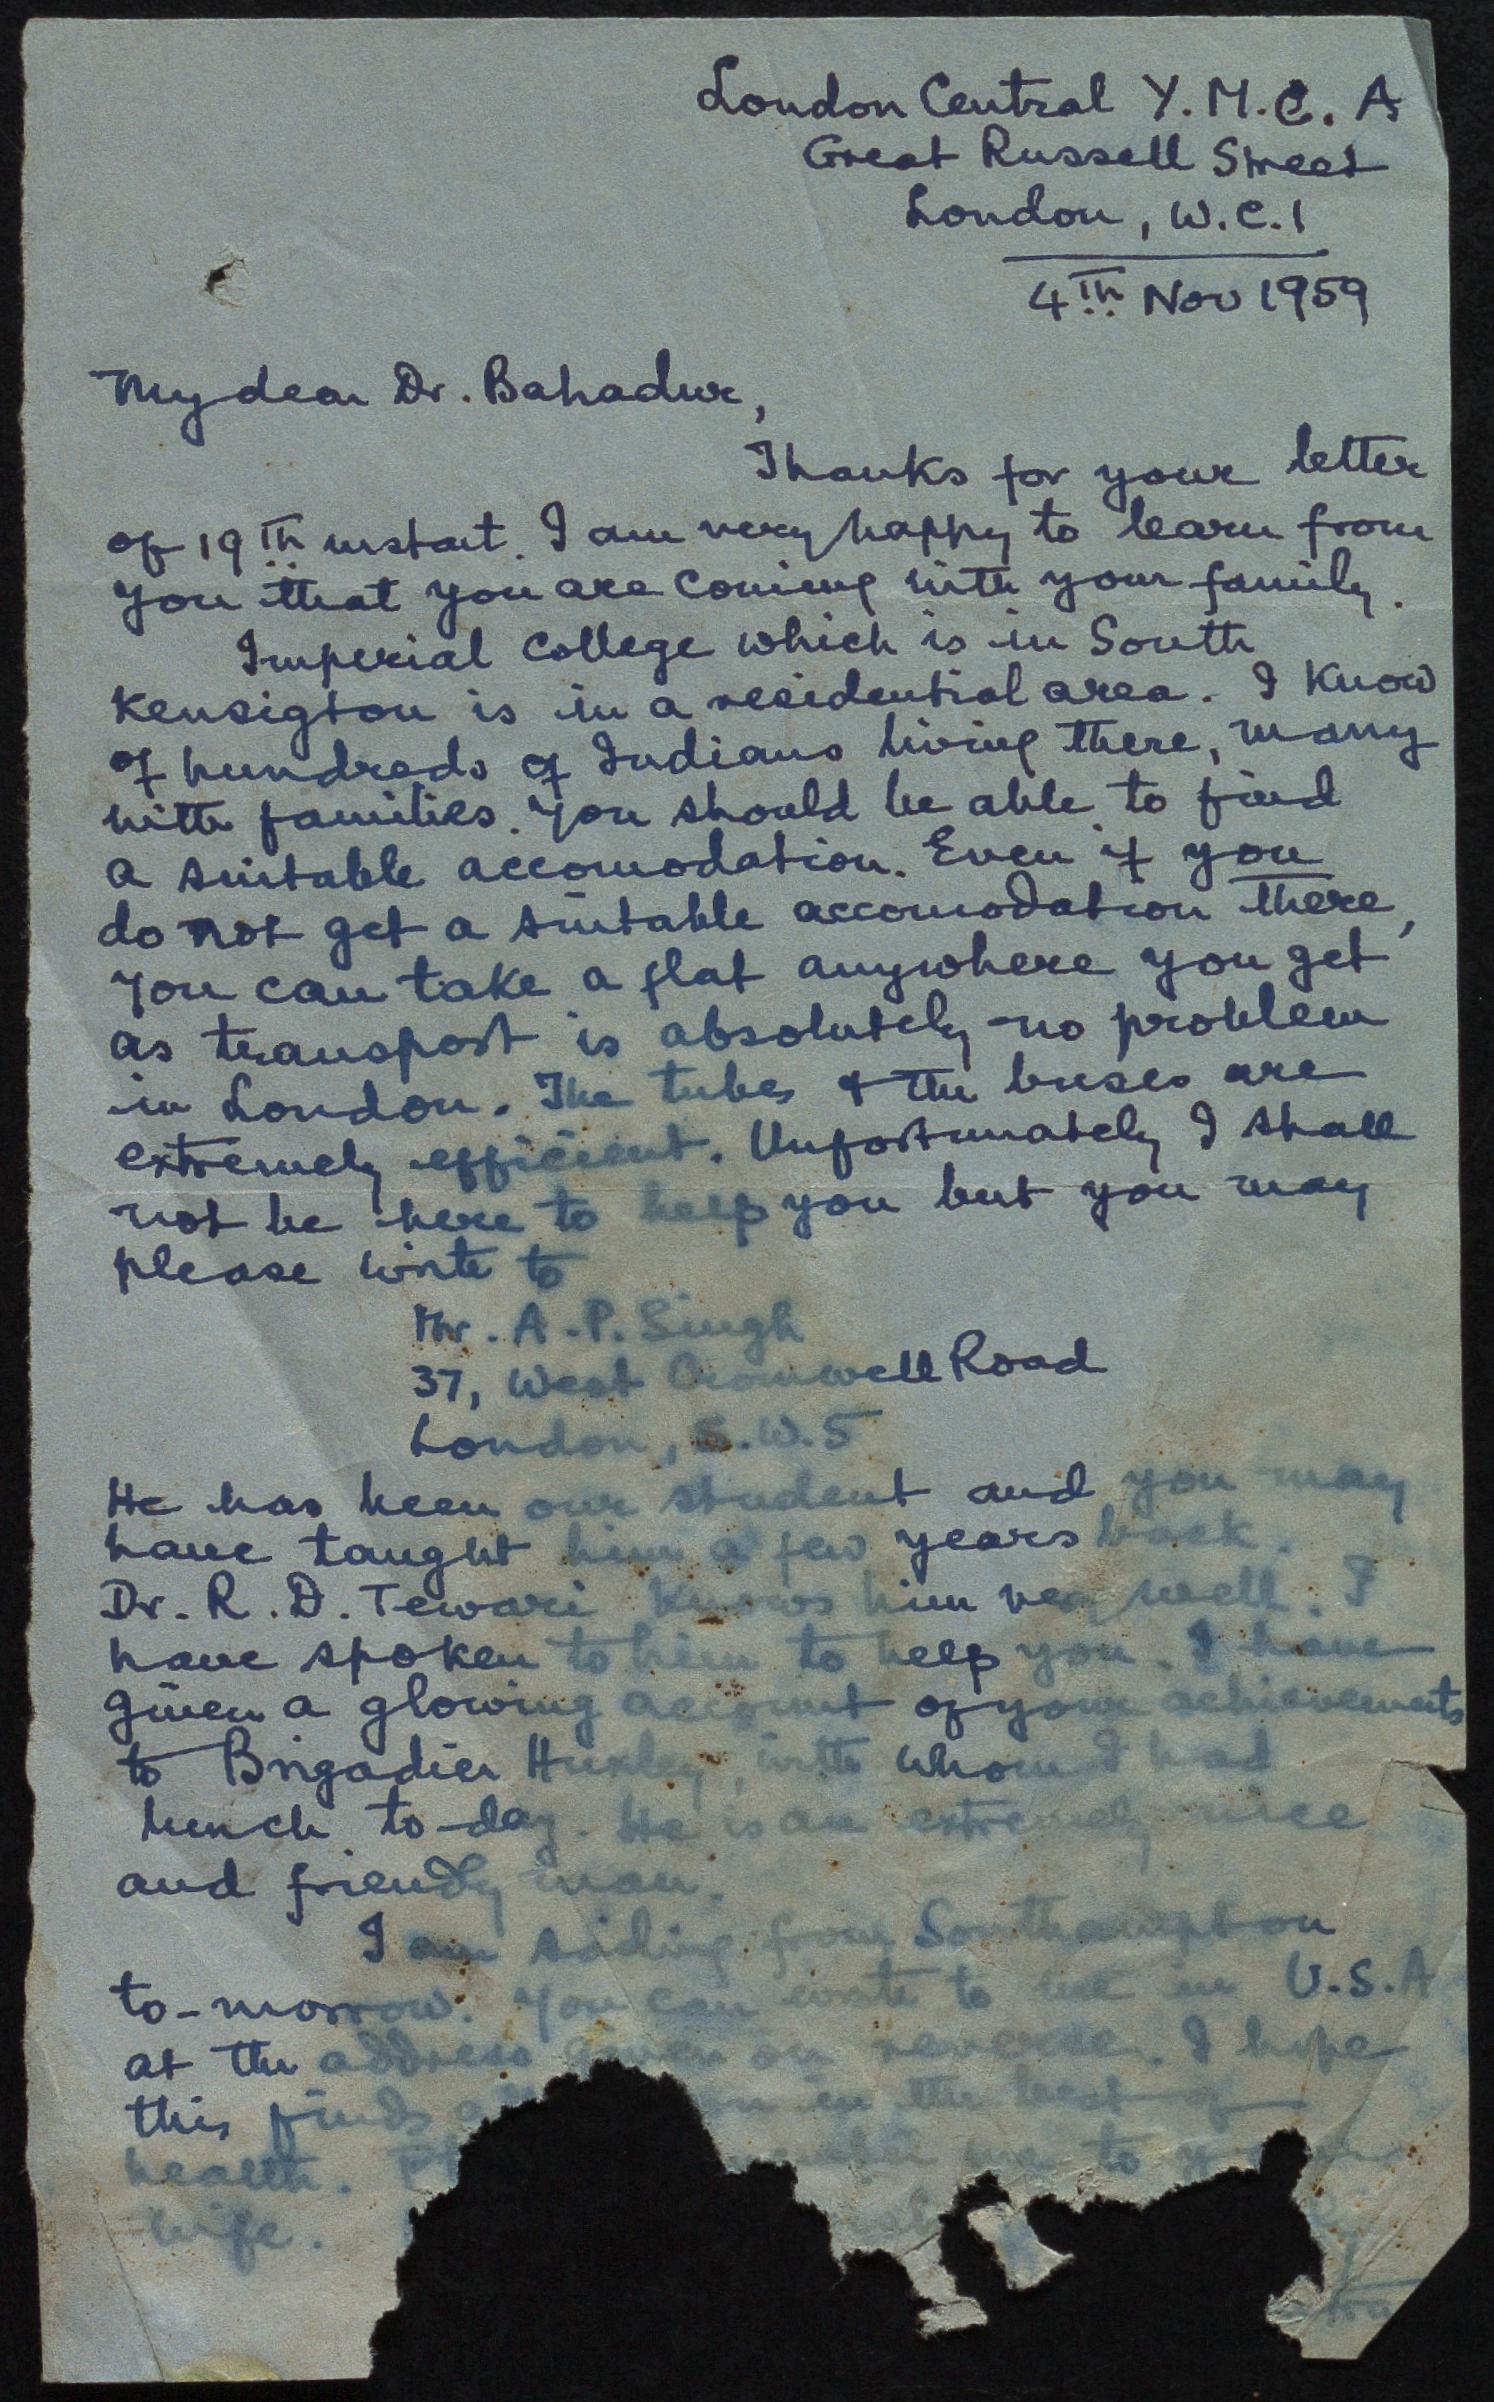 London Central Y.M.C.A
Great Russell Street
London, W.C.1
4th Nov 1959
My dear Dr. Bahadur,
Thanks for your letter
of 19th instant. I am very happy to learn from
you that you are coming with your family.
Imperial College which is in South
Kensigton is in a residential area. I know
of hundreds of Indians living there, many
with families. You should be able to find
a suitable accomodation. Even if you
do not get a suitable accomodation there,
you can take a flat anywhere you get
as transport is absolutely no problem
in London. The tubes & the buses are
extremely efficient. Unfortunately I shall
not be here to help you but you may
please write to
Mr. A.P. Singh
37, West Cromwell Road
London, S.W.5
He has been our student and you may
have taught him a few years back.
Dr. R.D. Tewari knows him very well. I
have spoken to him to help you. I have
given a glowing account of your achievements
to Brigadier Huxley, with whom I had
lunch to-day. He is an extremely nice
and friendly man.
I am sailing from Southampton
to-morrow. You can write to me in U.S.A
at the address given on reverse. I hope
this finds in the best of
health. me to your
wife.